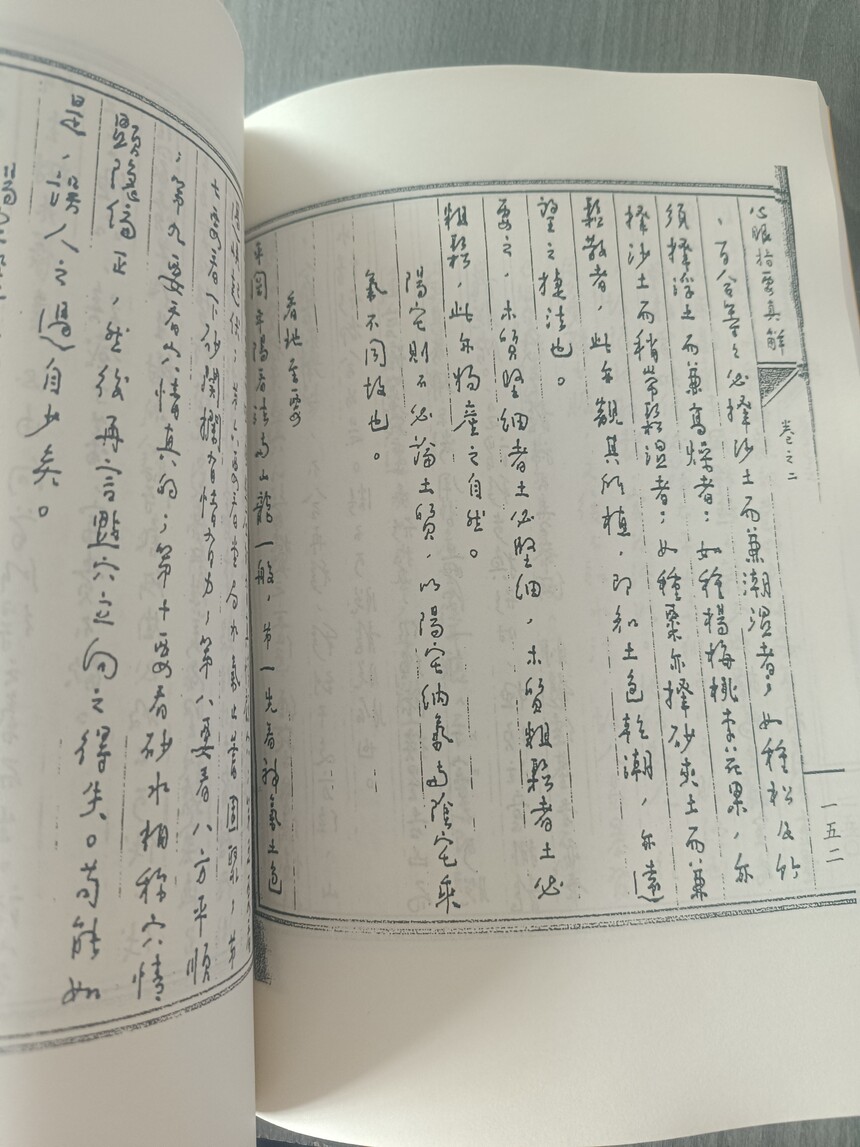 心眼指要真解
卷之二
一五二
、百合等之必擇沙土而兼潮濕者；如種松及竹
須擇浮土而兼高燥者；如種楊梅桃李花果，亦
擇沙土而稍帶鬆濕者；如種粟亦擇砂夾土而兼
鬆散者，此亦觀其所植，即知土色乾潮，亦遠
望之捷法也。
要之，木質堅細者土必堅細，木質粗鬆者土必
粗鬆，此亦物產之自然。
陽宅則不必論土質，以陽宅納氣與陰宅乘
氣不同故也。
看地至要
平岡平陽看法與山龍一般，第一先看神氣土色
七要看下砂關攔有情有力，第八要看八方平順
；第九要看穴情真的；第十要看砂水相稱穴情
顯隱偏正，然後再言點穴立向之得失。苟能如
是，誤人之過自少矣。